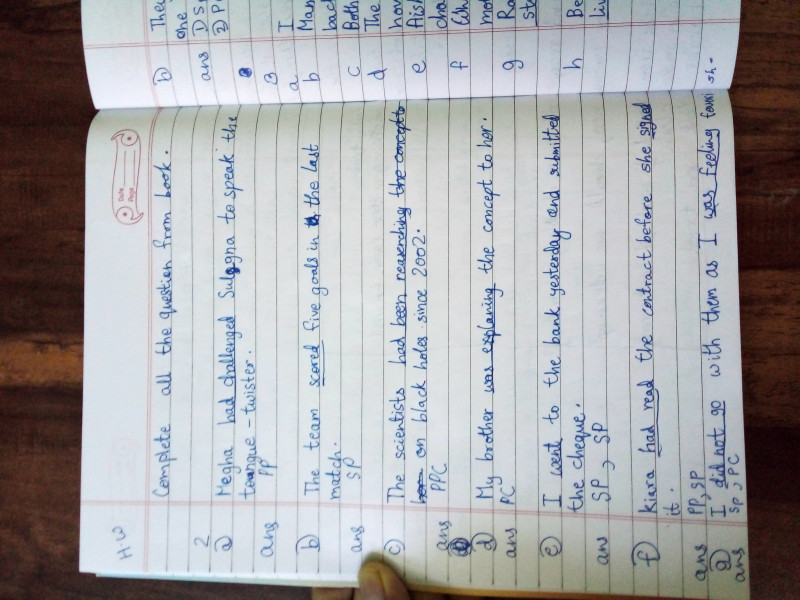 H.W
Date
Page
Complete all the question from book.
2
a) Megha had challenged Sulagna to speak the
tongue-twister.
ans PP
b) The team scored five goals in the last
match.
ans SP
c) The scientists had been researching the concepts
on black holes since 2002.
ans PPC
d My brother was explaining the concept to her.
ans PC
e) I went to the bank yesterday and submitted
the cheque.
ans SP, SP
f) Kiara had read the contract before she signed
it.
ans PP, SP
g) I did not go with them as I was feeling
ans SP, PC
b)
one
ans
3
a I
b
c Both
d The
e
f
g
h